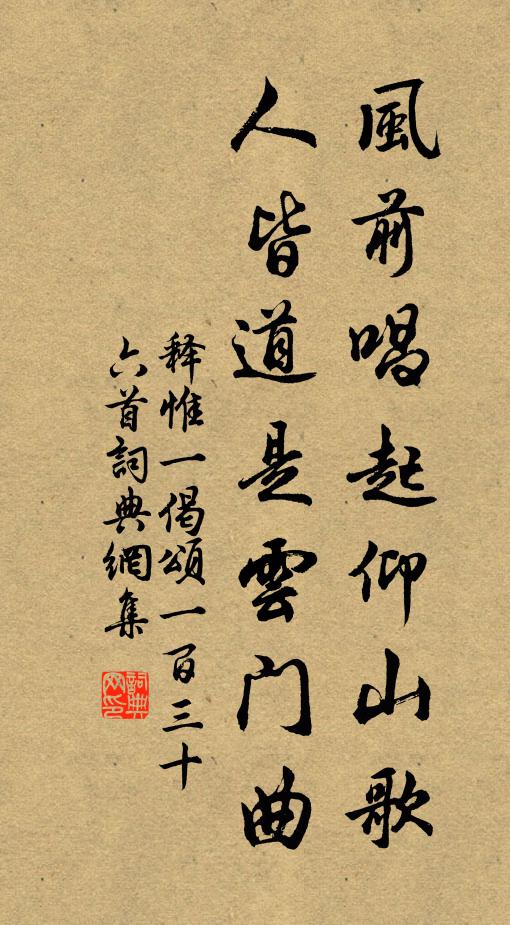 風前唱起仰山歌
人皆道是雲門曲
释惟一偈頌一百三十
六首詞典網集
詞典
网印